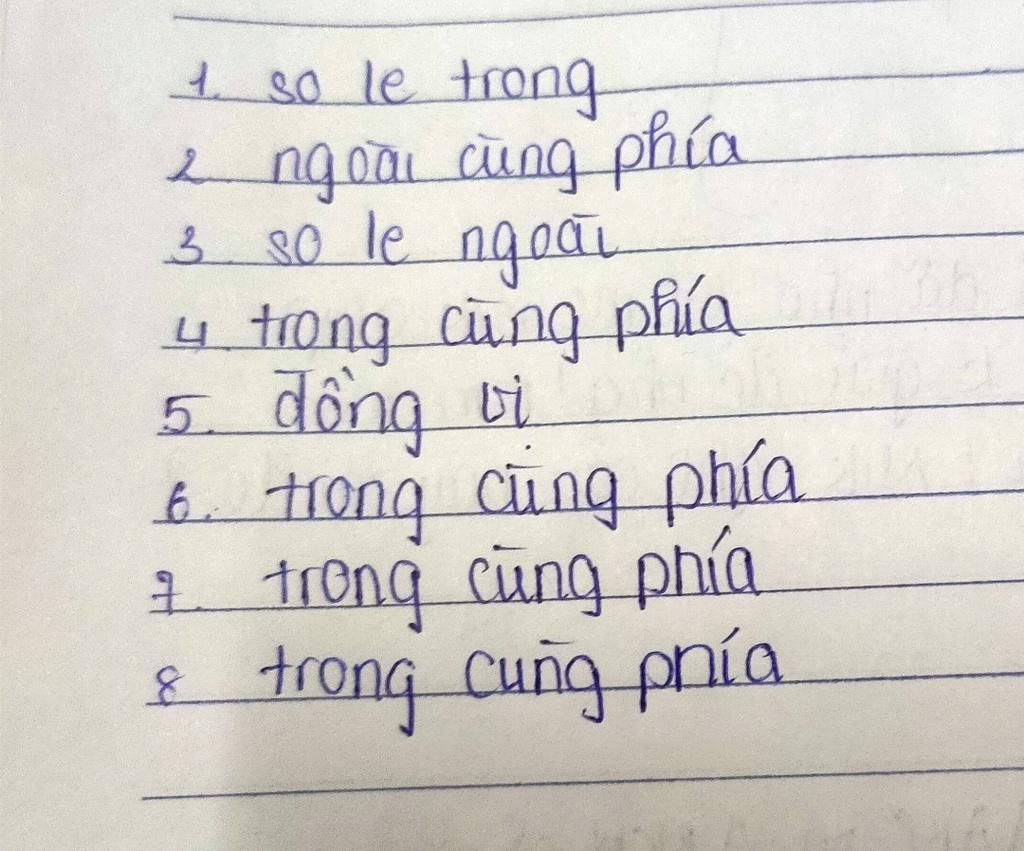 1. so le trong
2 ngoài cùng phía
3. so le ngoài
4. trong cùng phía
5. đồng vị
6. trong cùng phía
7. trong cùng phía
8 trong cùng phía